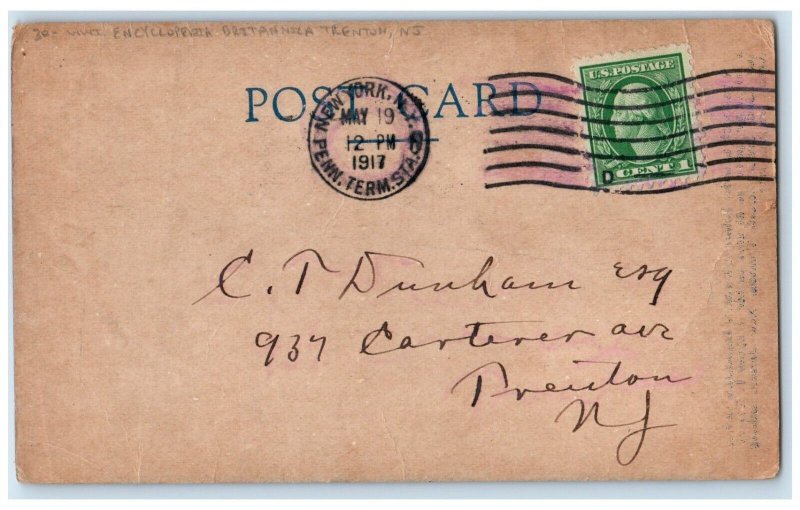 ENCYCLOPEDIA BRITANNICA TRENTON, NJ
POST CARD
NEW YORK, N.Y.
MAY 19
12 PM
1917
PENN. TERM. STA.
U.S. POSTAGE
1 CENT 1
D
C. T Dunham Esq
937 Carteret ave
Trenton
NJ